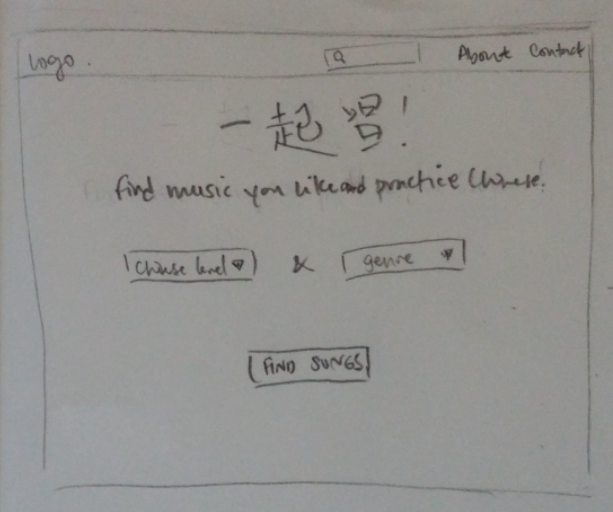 Logo. About Contact
一起唱!
find music you like and practice Chinese.
Chinese level & genre
FIND SONGS